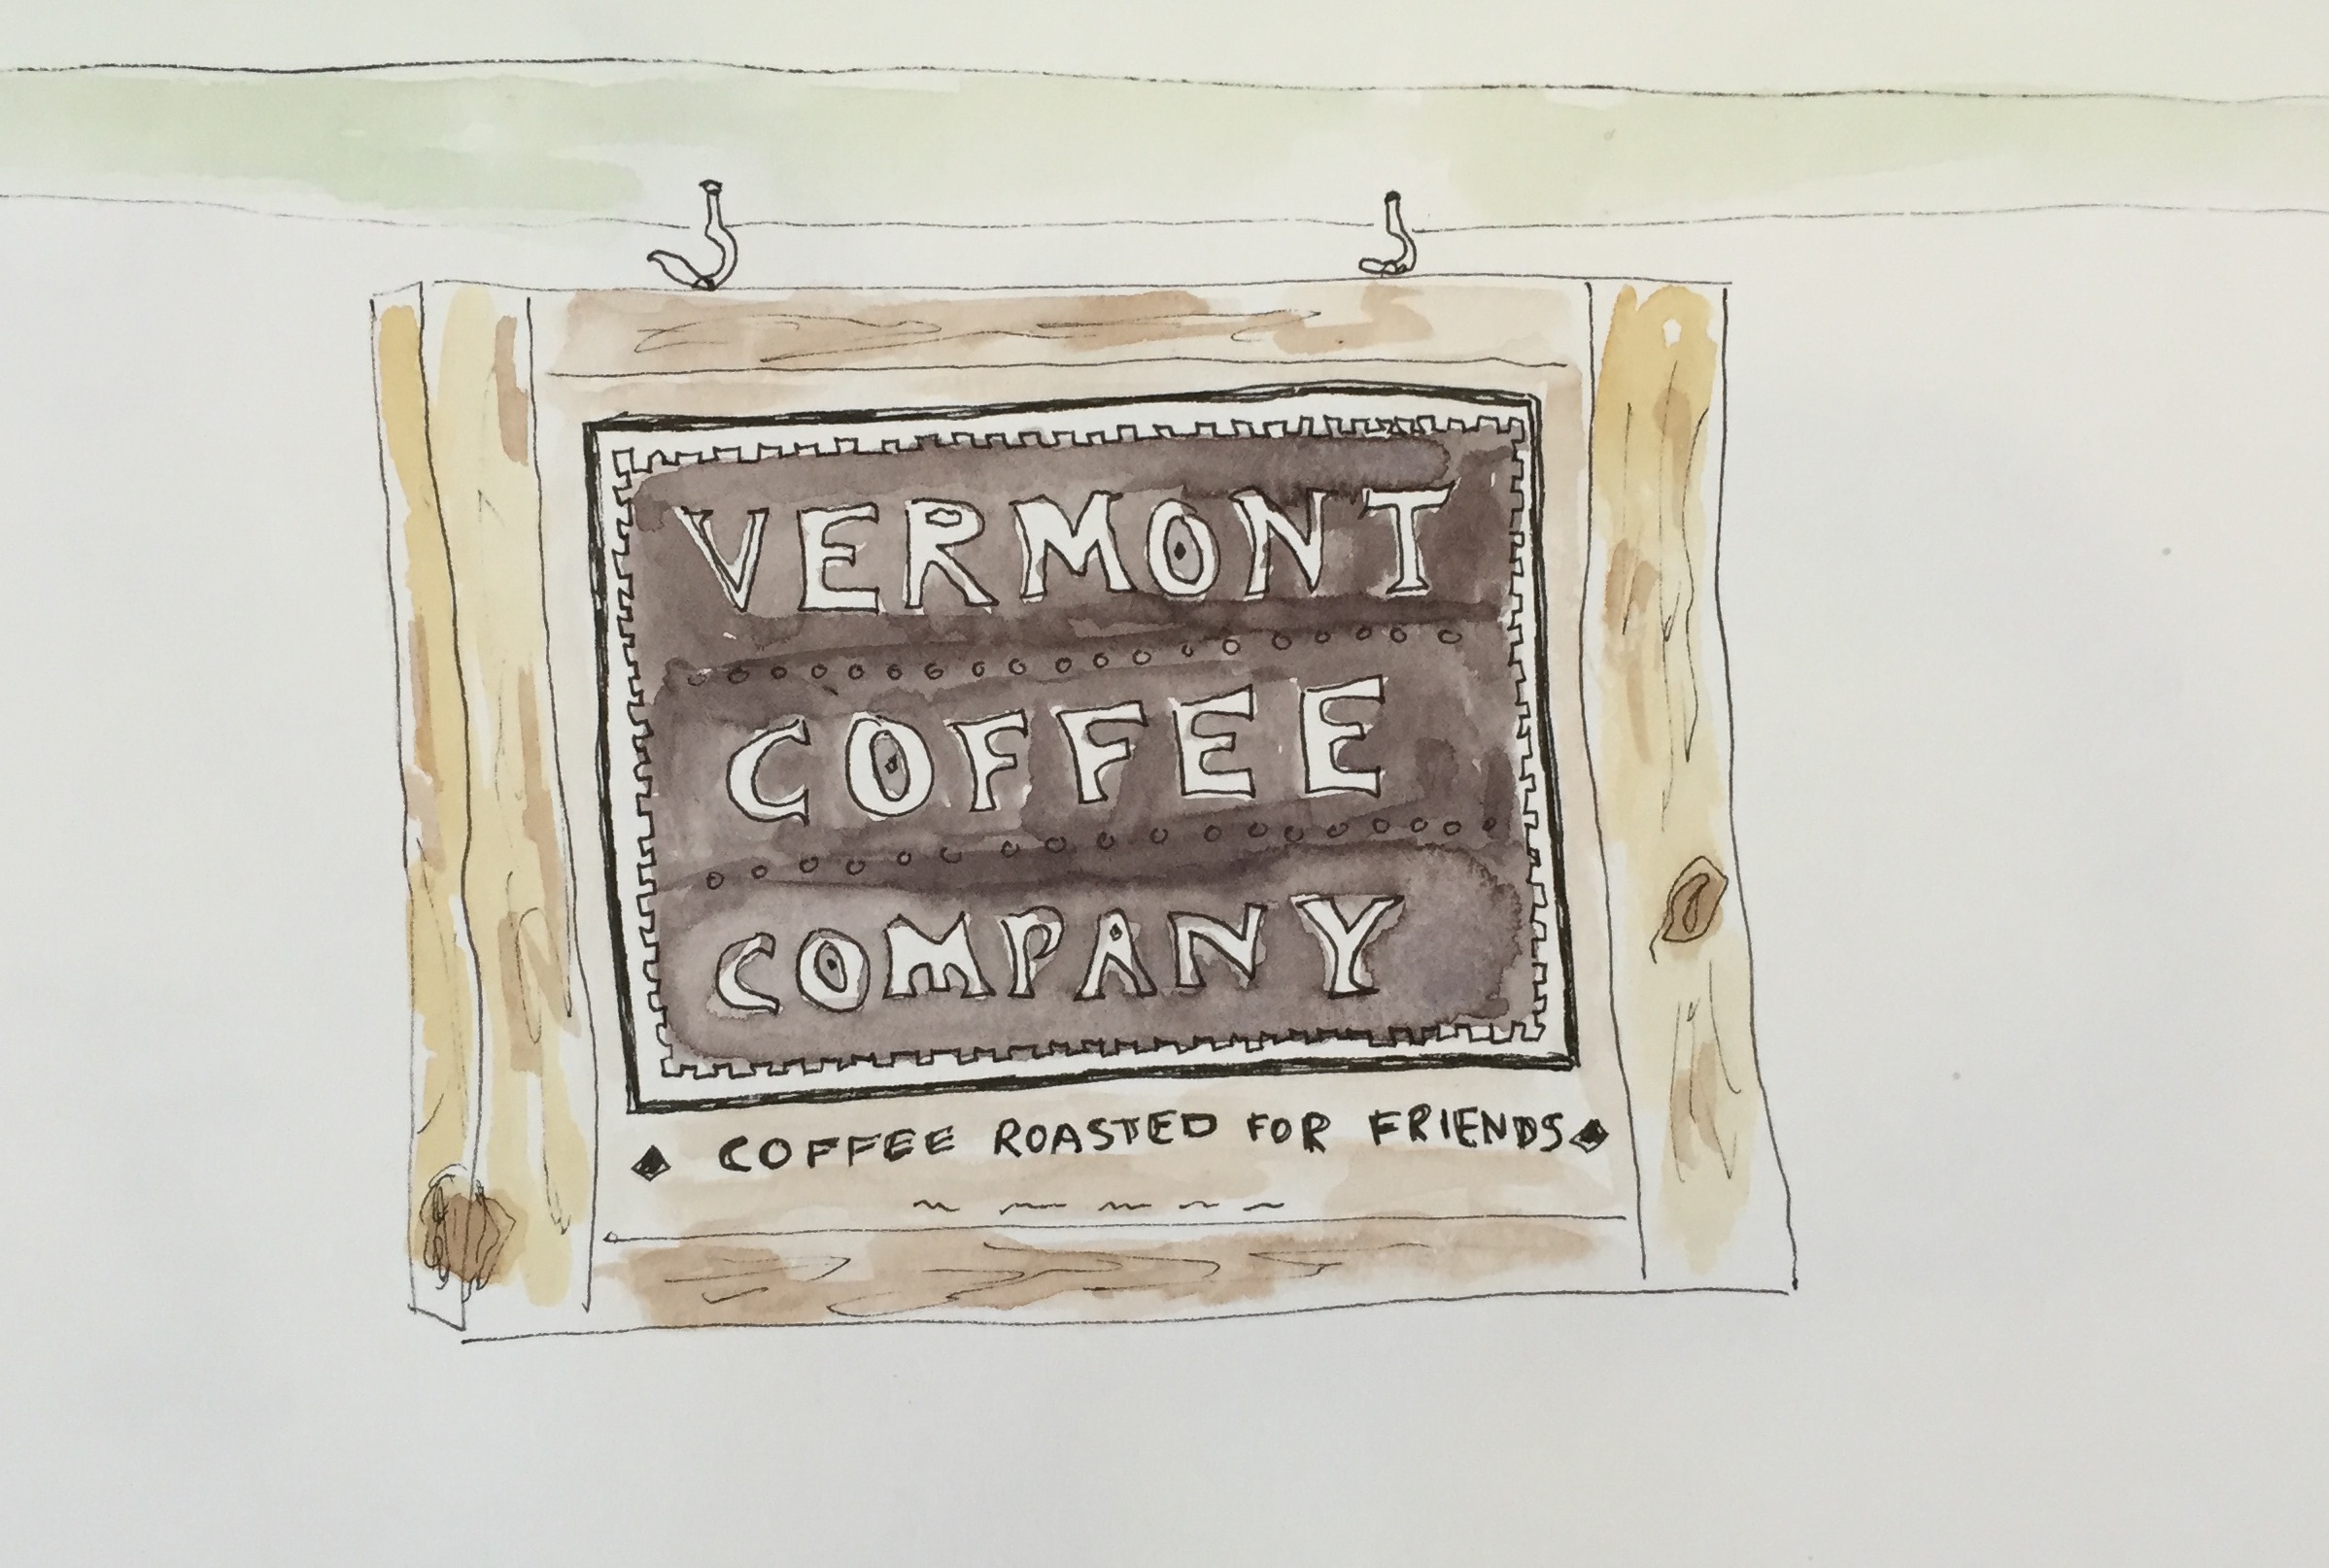 VERMONT
COFFEE
COMPANY
COFFEE ROASTED FOR FRIENDS